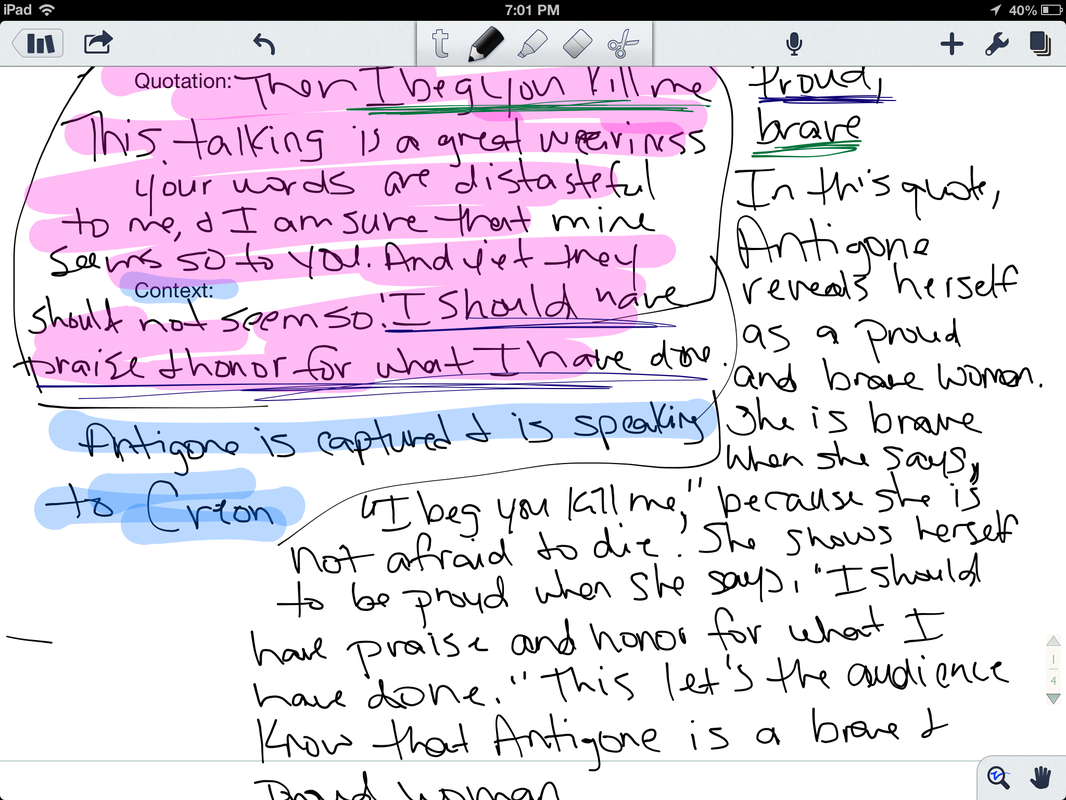 iPad 7:01 PM 40%
t
Quotation: Then I beg you kill me
This talking is a great weariness
your words are distasteful
to me, & I am sure that mine
seems so to you. And yet they
Context:
should not seem so. I should have
praise & honor for what I have done.
Antigone is captured & is speaking
to Creon
Proud,
brave
In this quote,
Antigone
reveals herself
as a proud
and brave woman.
She is brave
when she says,
"I beg you kill me," because she is
not afraid to die. She shows herself
to be proud when she says, "I should
have praise and honor for what I
have done." This let's the audience
know that Antigone is a brave &
Proud woman
1
4